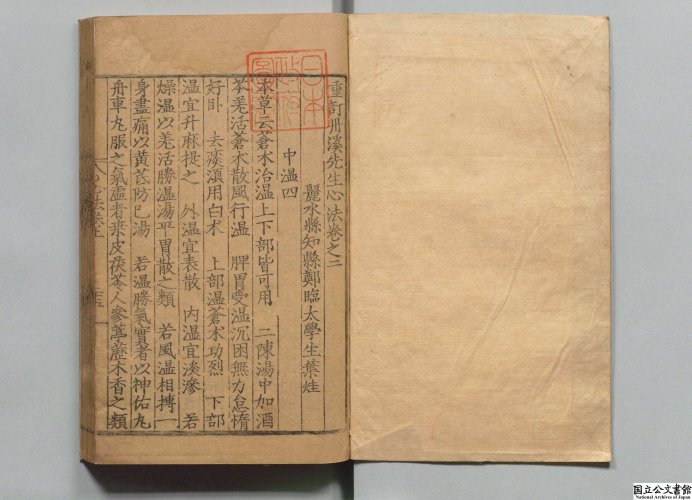 重訂丹溪先生心法卷之二
麗水縣知縣鄭臨太學生葉烓
中濕四
本草云蒼术治濕上下部皆可用 二陳湯中加酒
芩羌活蒼术散風行濕 脾胃受濕沉困無力怠惰
好卧 去痰須用白术 上部濕蒼术功烈 下部
濕宜升麻提之 外濕宜表散 內濕宜淡滲 若
燥濕以羌活勝濕湯平胃散之類 若風濕相搏一
身盡痛以黃芪防已湯 若濕勝氣實者以神佑丸
舟車丸服之氣虛者桑皮茯苓人參葶藶木香之類
国立公文書館
National Archives of Japan